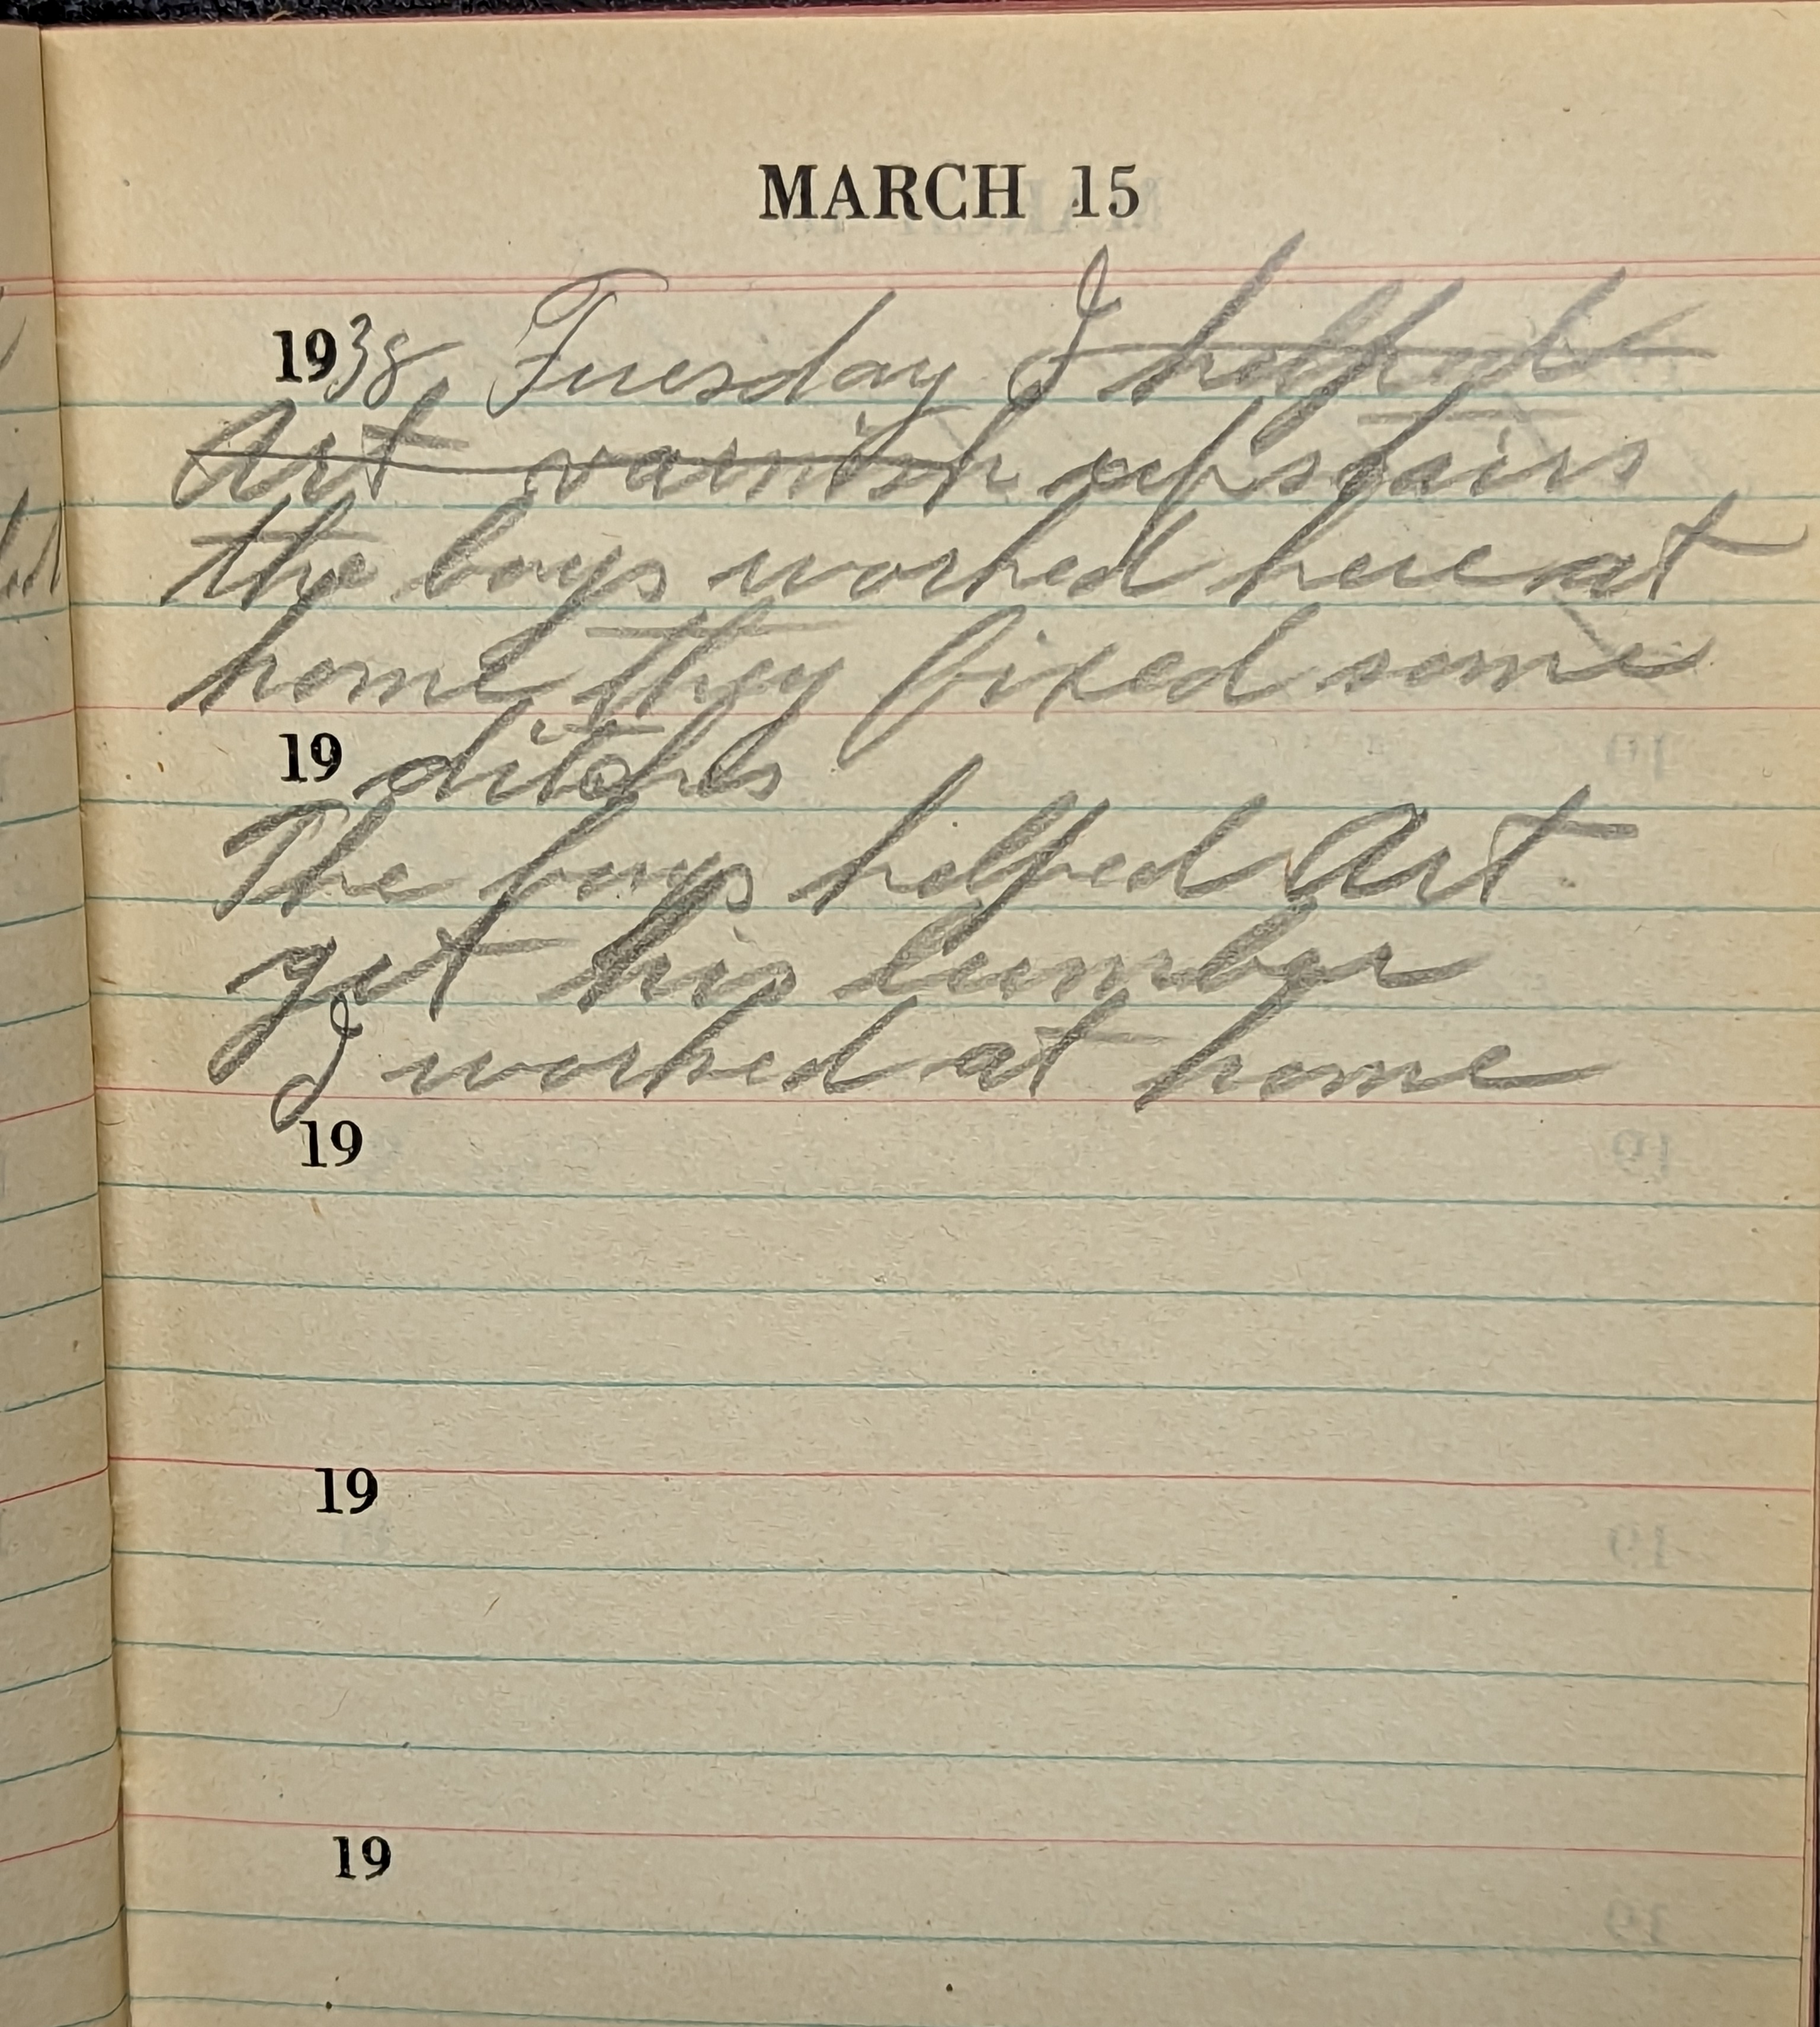 MARCH 15
1938 Tuesday I helped
Art varnish upstairs
the boys worked here at
home they fixed some
19 ditches
The boys helped Art
get his lumber
I worked at home
19
19
19